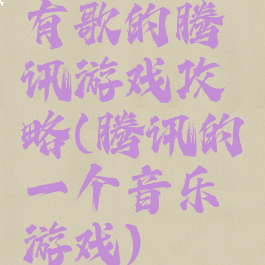 有歌的腾
讯游戏攻
略(腾讯的
一个音乐
游戏)